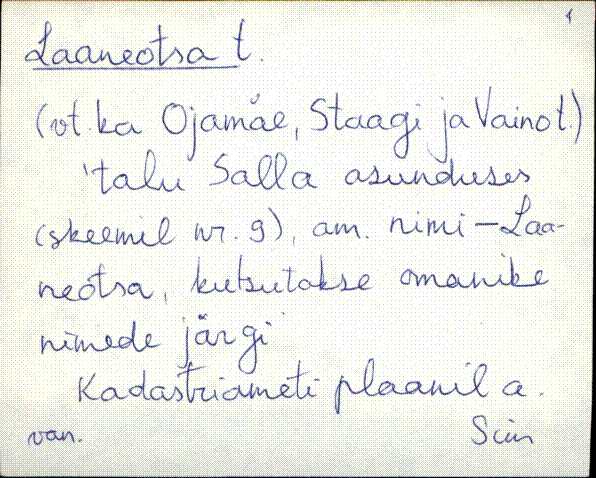 1
Laaneotsa t.
(vt. ka Ojamäe, Staagi ja Vaino t.)
'talu Salla asunduses
(skeemil nr. 9), am. nimi – Laa-
neotsa, kutsutakse omanike
nimede järgi'
Kadastriameti plaanil a.
van.